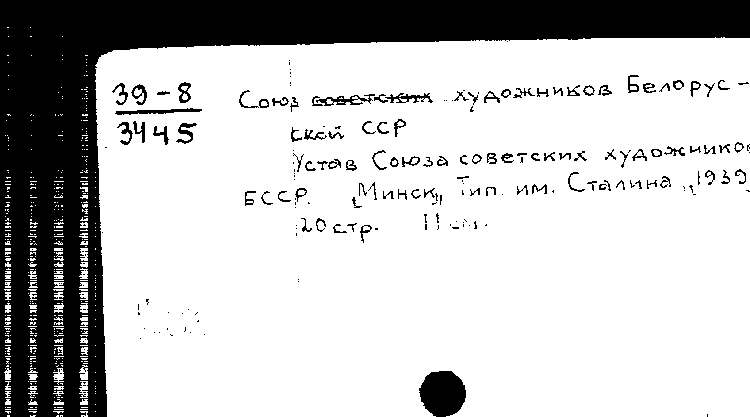 39-8
3445
Союз советских художников Белорус-
ской ССР
Устав Союза советских художников
БССР. [Минск], Тип. им. Сталина, [1939]
20 стр. 11 см.